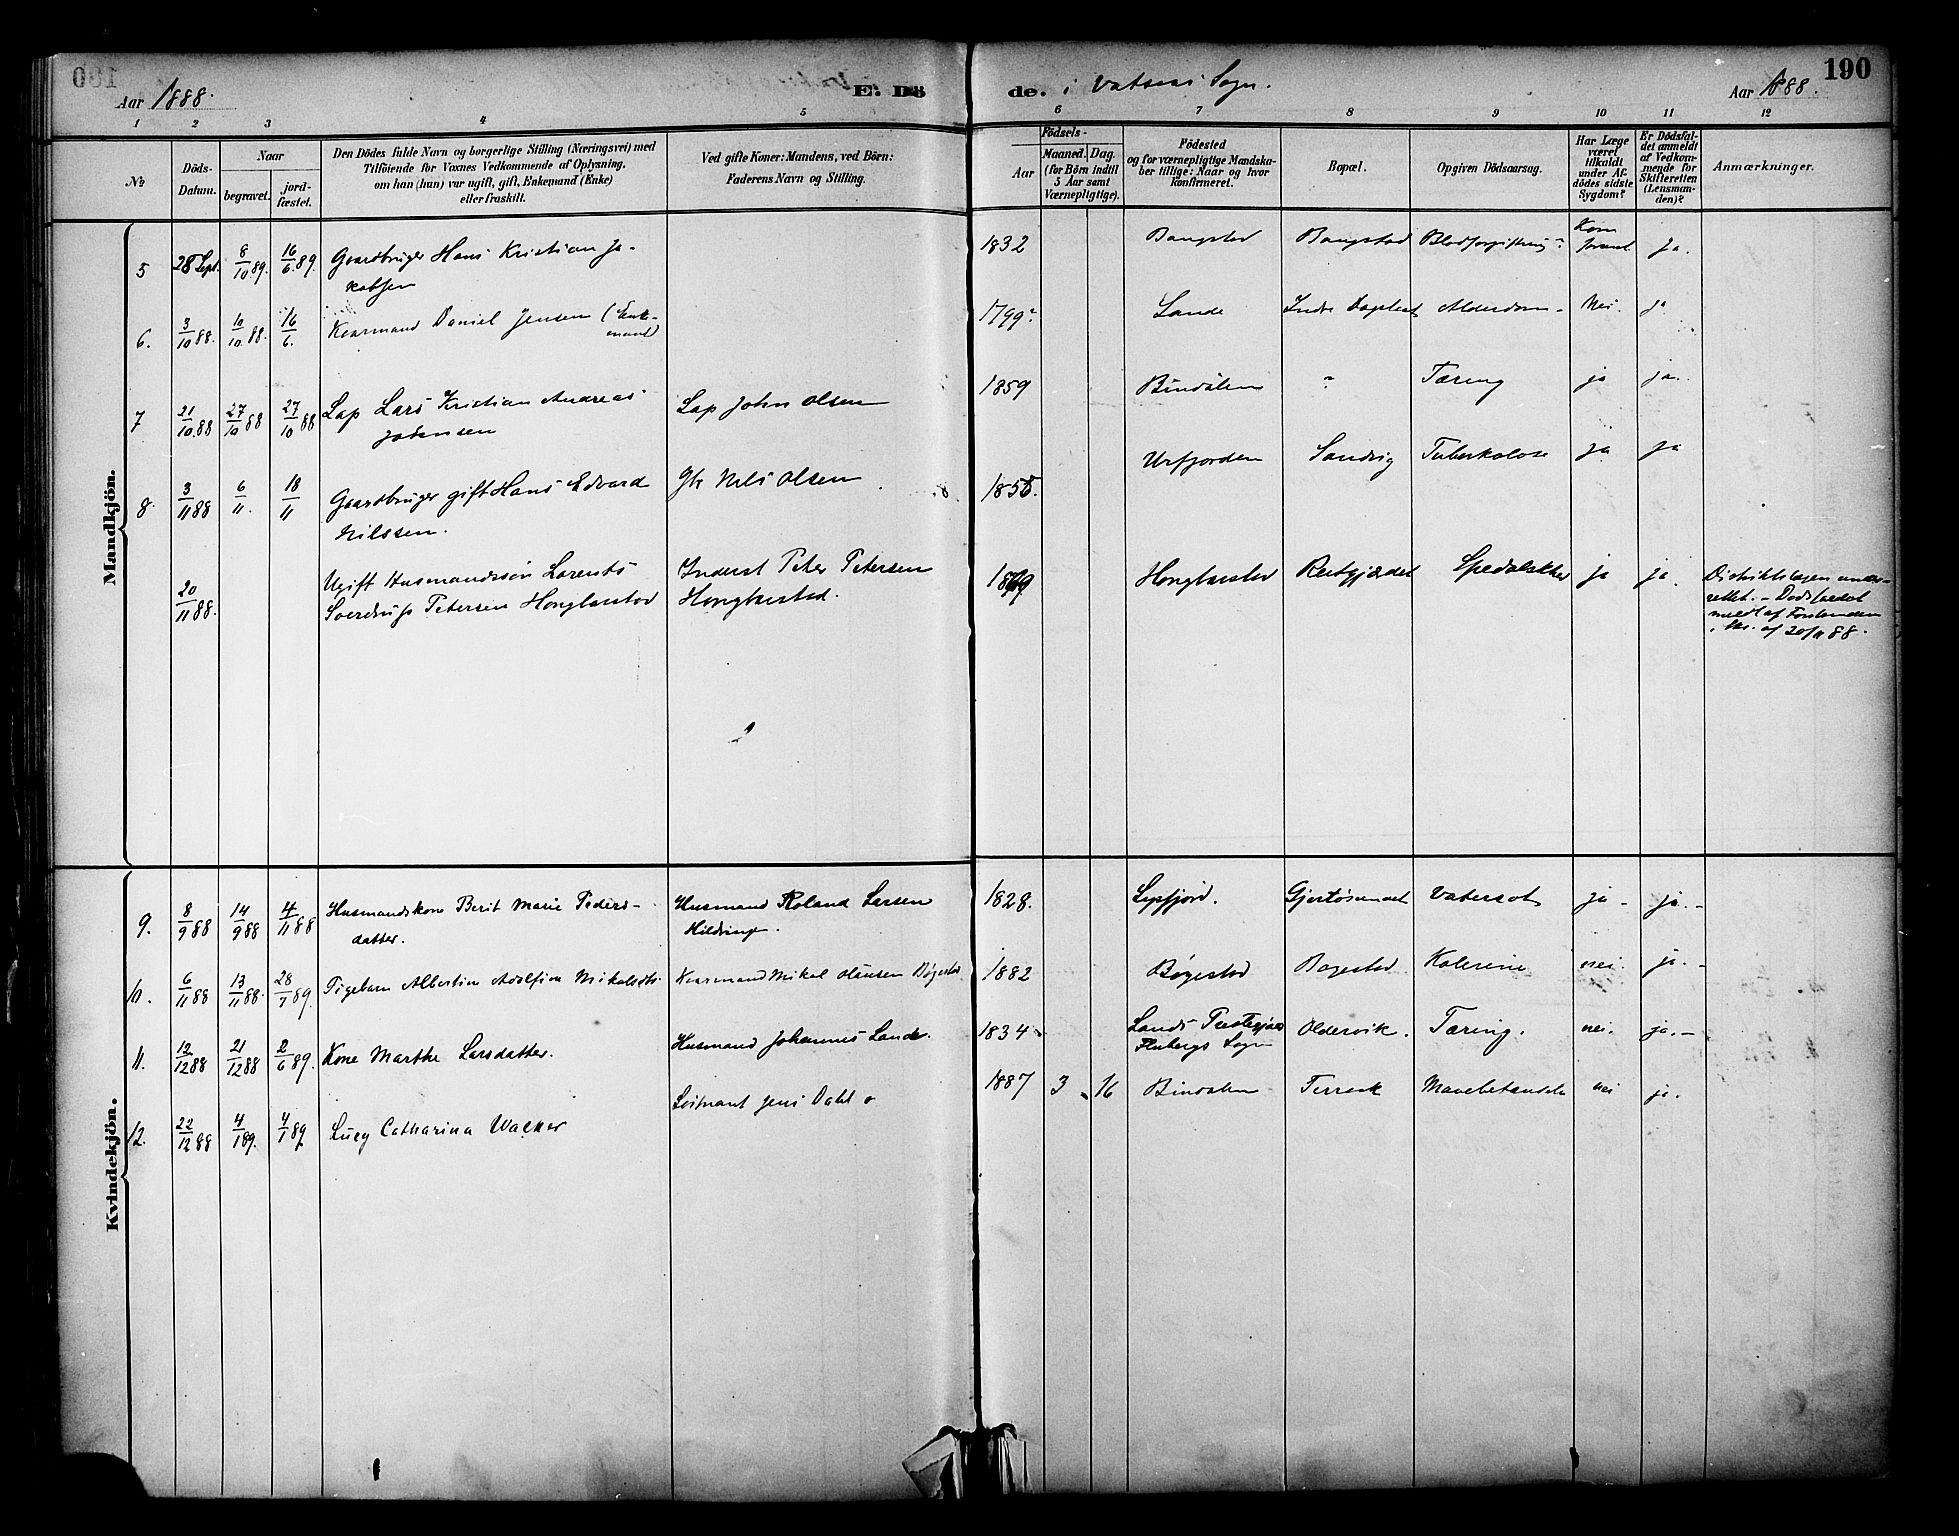 190
Aar 1888.
E. Dö de. i Vatsens Sogn.
Aar 1888.
1 2 3 4 5 6 7 8 9 10 11 12
№
Döds-Datum.
Naar
begravet. jord-fæstet.
Den Dödes fulde Navn og borgerlige Stilling (Næringsvei) med
Tilföiende for Voxnes Vedkommende af Oplysning,
om han (hun) var ugift, gift, Enkemand (Enke)
eller fraskilt.
Ved gifte Koner: Mandens, ved Börn:
Faderens Navn og Stilling.
Födsels-
Aar Maaned. Dag.
(for Börn indtil
5 Aar samt
Værnepligtige).
Födested
og for værnepligtige Mandska-
ber tillige: Naar og hvor
konfirmeret.
Bopæl.
Opgiven Dödsaarsag.
Har Læge
været
tilkaldt
under Af-
dödes sidste
Sygdom?
Er Dödsfal-
det anmeldt
af Vedkom-
mende for
Skifteretten
(Lensman-
den)?
Anmærkninger.
Mandkjön.
5 28 Sept. 8/10 89. 16/6 89. Gaardbruger Hans Kristian Ja-
kobsen
1832 Bangstad Bangstad Blodforgiftning Ja.
6. 3/10 88. 10/10 88. 16/6. Kaarmand Daniel Jensen (Enke-
mand)
1799? Lande Indre Nei. ja
Alderdom
7 21/10 88 27/10 88 27/10 88 Lap Lars Kristian Andreas
Johnsen
Lap John Olsen 1859 Bindalen " Tæring ja ja.
8. 3/11 88 6/11. 18/11 Gaardbruger gift Hans Edvard
Nilssen.
Gbr Nils Olsen 1855. Urfjorden Sandvig Tuberkolose ja ja
20/11 88. Ugift Husmandssön Lorents
Sverdrup Petersen Honglarstad
Inderst Peter Petersen
Honglarstad.
Honglarstad Reitgjærdet Spedalskhed ja ja.
Distriktslægen under-
rettet. – Dödsfaldet
meldt af Forstanderen
af 20/11 88.
Kvindekjön.
9. 8/9 88 14/9 88 4/11 88 Husmandskone Berit Marie Peders-
datter.
Husmand Roland Larsen
Hildringe.
1828. Lepfjord. Gjertösundet Vatersot ja – ja. –
10. 6/11 88 13/11 88. 28/1 89. Pigebarn Albertine Adolfine Mikalsdtr
Kaarmand Mikal Olausen Bögestad 1882 Bögestad Bogestad Kolerine nei. ja. –
11. 12/12 88 21/12 88 2/6 89. Kone Marthe Larsdatter.
Husmand Johannes Lande. 1834 Lands Præstegjæld
Flubergs Sogn
Oldervik. Tæring. nei. ja. –
12. 22/12 88 4/1 89. 4/1 89 Lucy Catharina Walker
Löitnant Jens Dahl 1887 3 16 Bindalen Terraak Mavebetændelse nei ja.